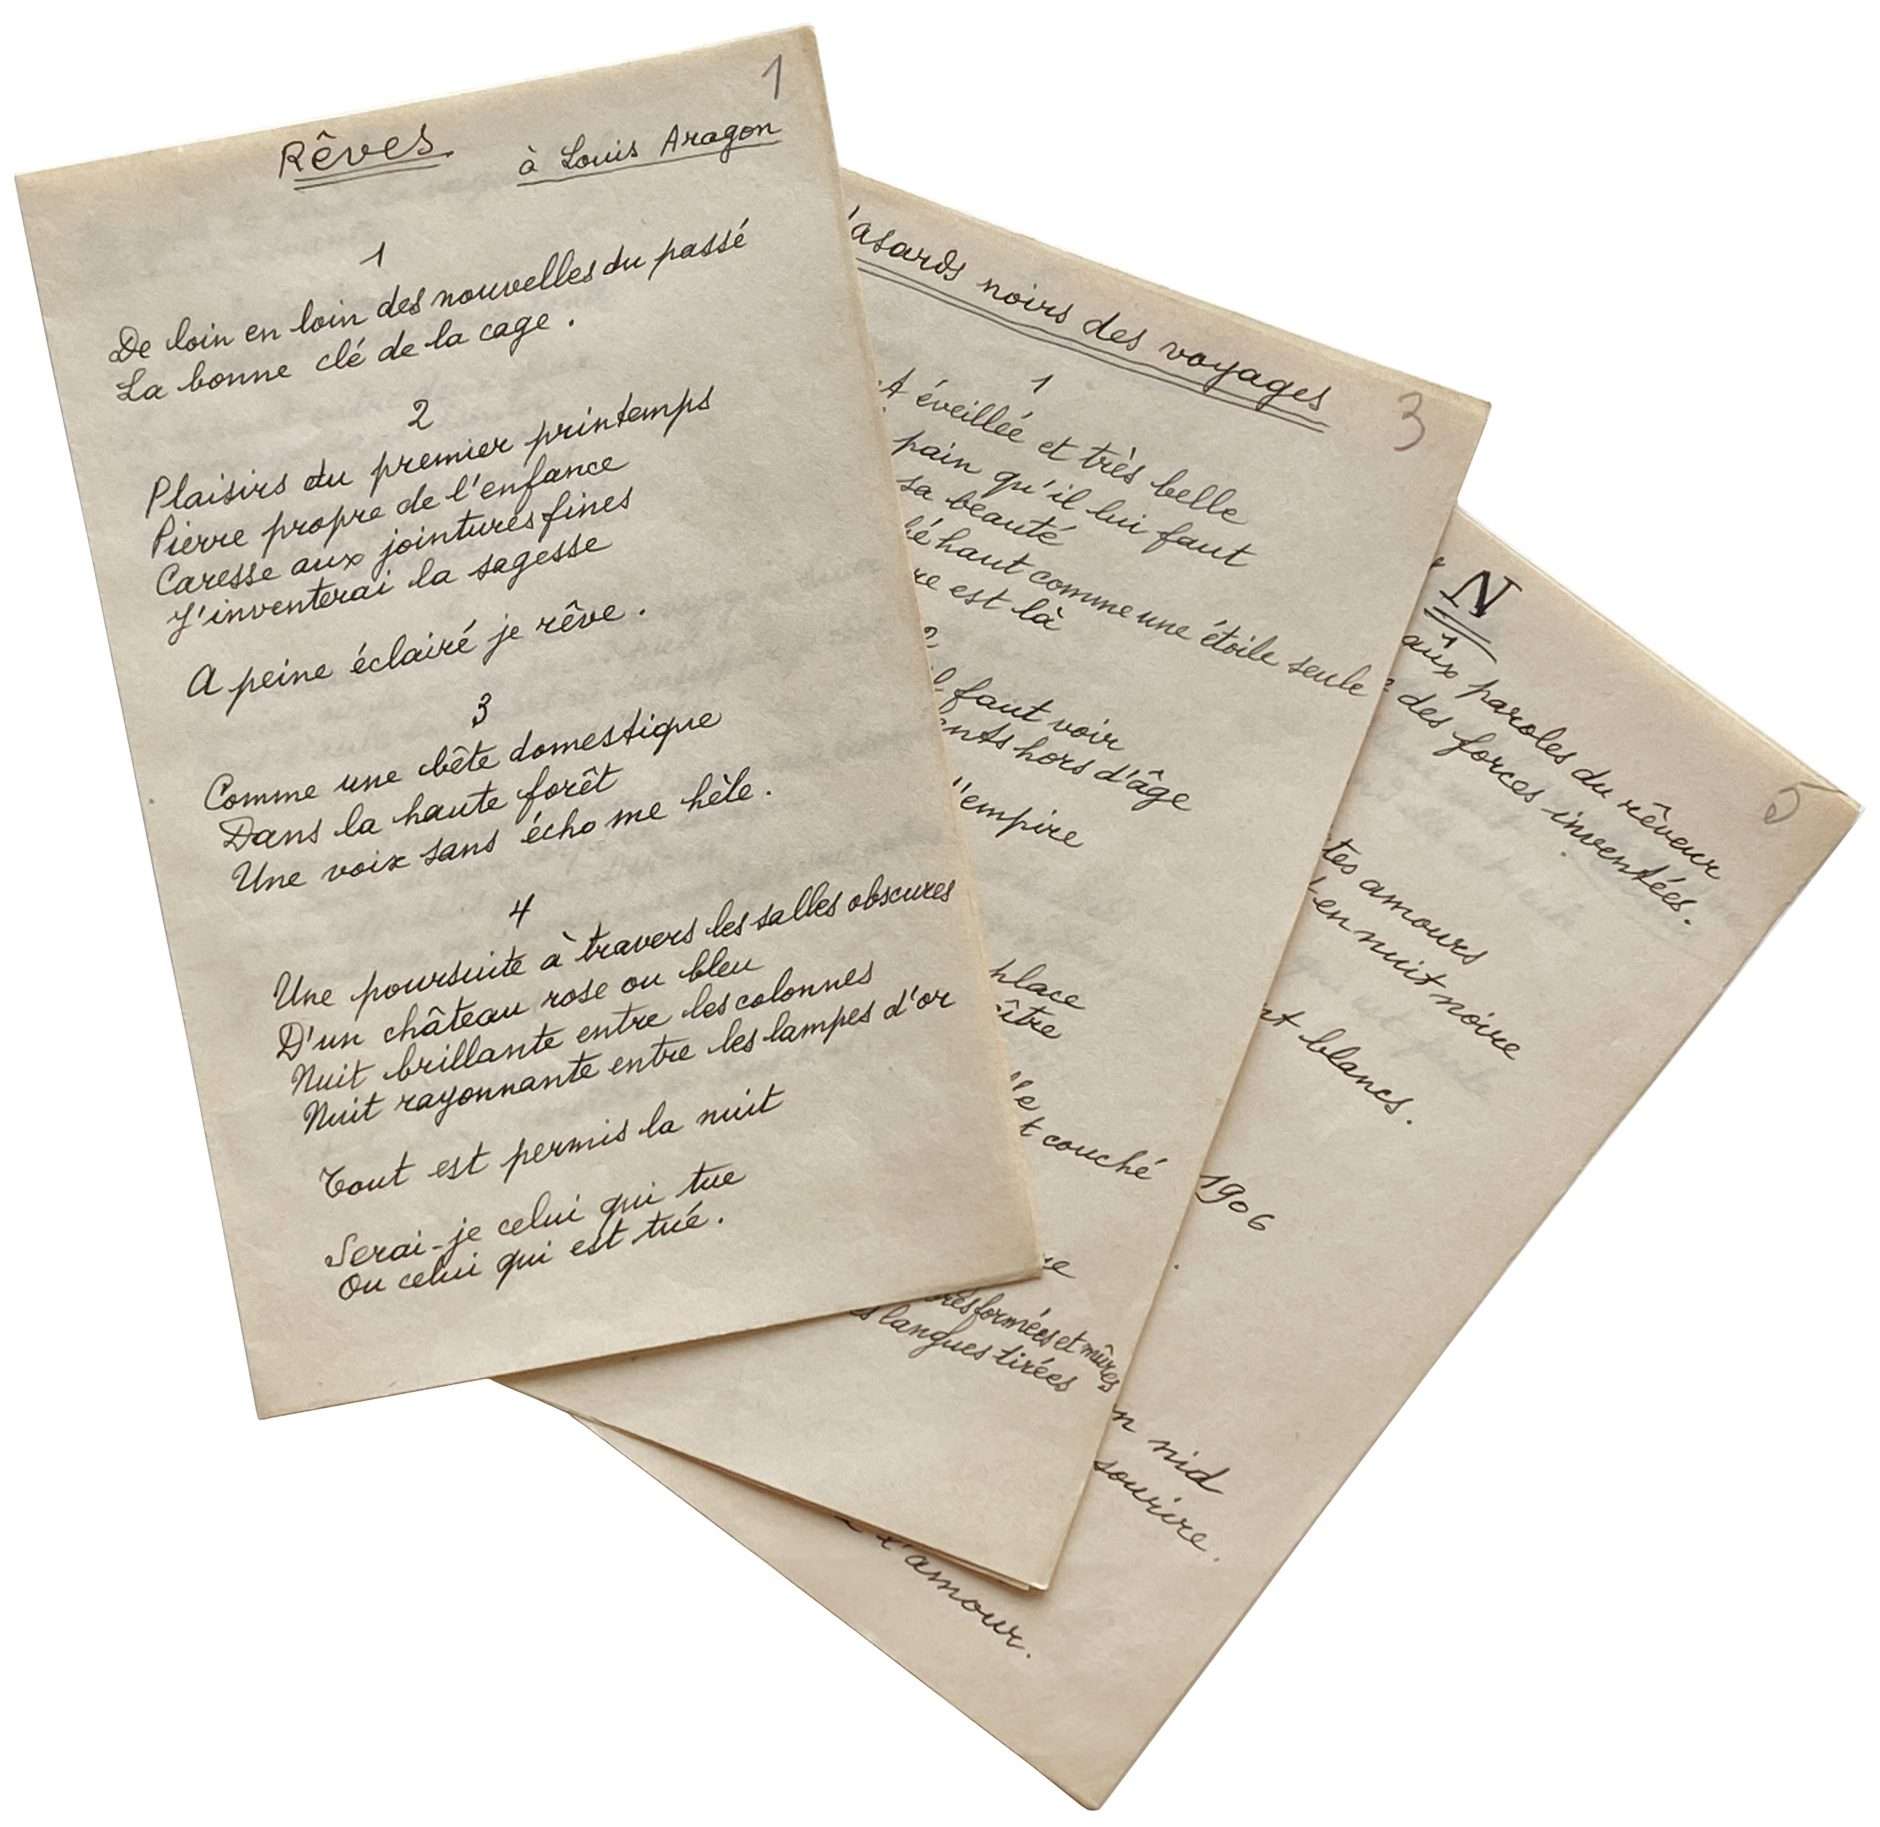 1
Rêves à Louis Aragon
1
De loin en loin des nouvelles du passé
La bonne clé de la cage.
2
Plaisirs du premier printemps
Pierre propre de l'enfance
Caresse aux jointures fines
J'inventerai la sagesse
A peine éclairé je rêve.
3
Comme une bête domestique
Dans la haute forêt
Une voix sans écho me hèle.
4
Une poursuite à travers les salles obscures
D'un château rose ou bleu
Nuit brillante entre les colonnes
Nuit rayonnante entre les lampes d'or
Tout est permis la nuit
Serai-je celui qui tue
Ou celui qui est tué.
3
asards noirs des voyages
1
éveillée et très belle
pain qu'il lui faut
sa beauté
haut comme une étoile seule
re est là
2
faut voir
ents hors d'âge
l'empire
place
ître
lle
t couché
ue
formées et mûres
langues tirées
5
N
1
aux paroles du rêveur
des forces inventées.
tes amours
en nuit noire
nt blancs.
1906
n nid
sourire.
l'amour.